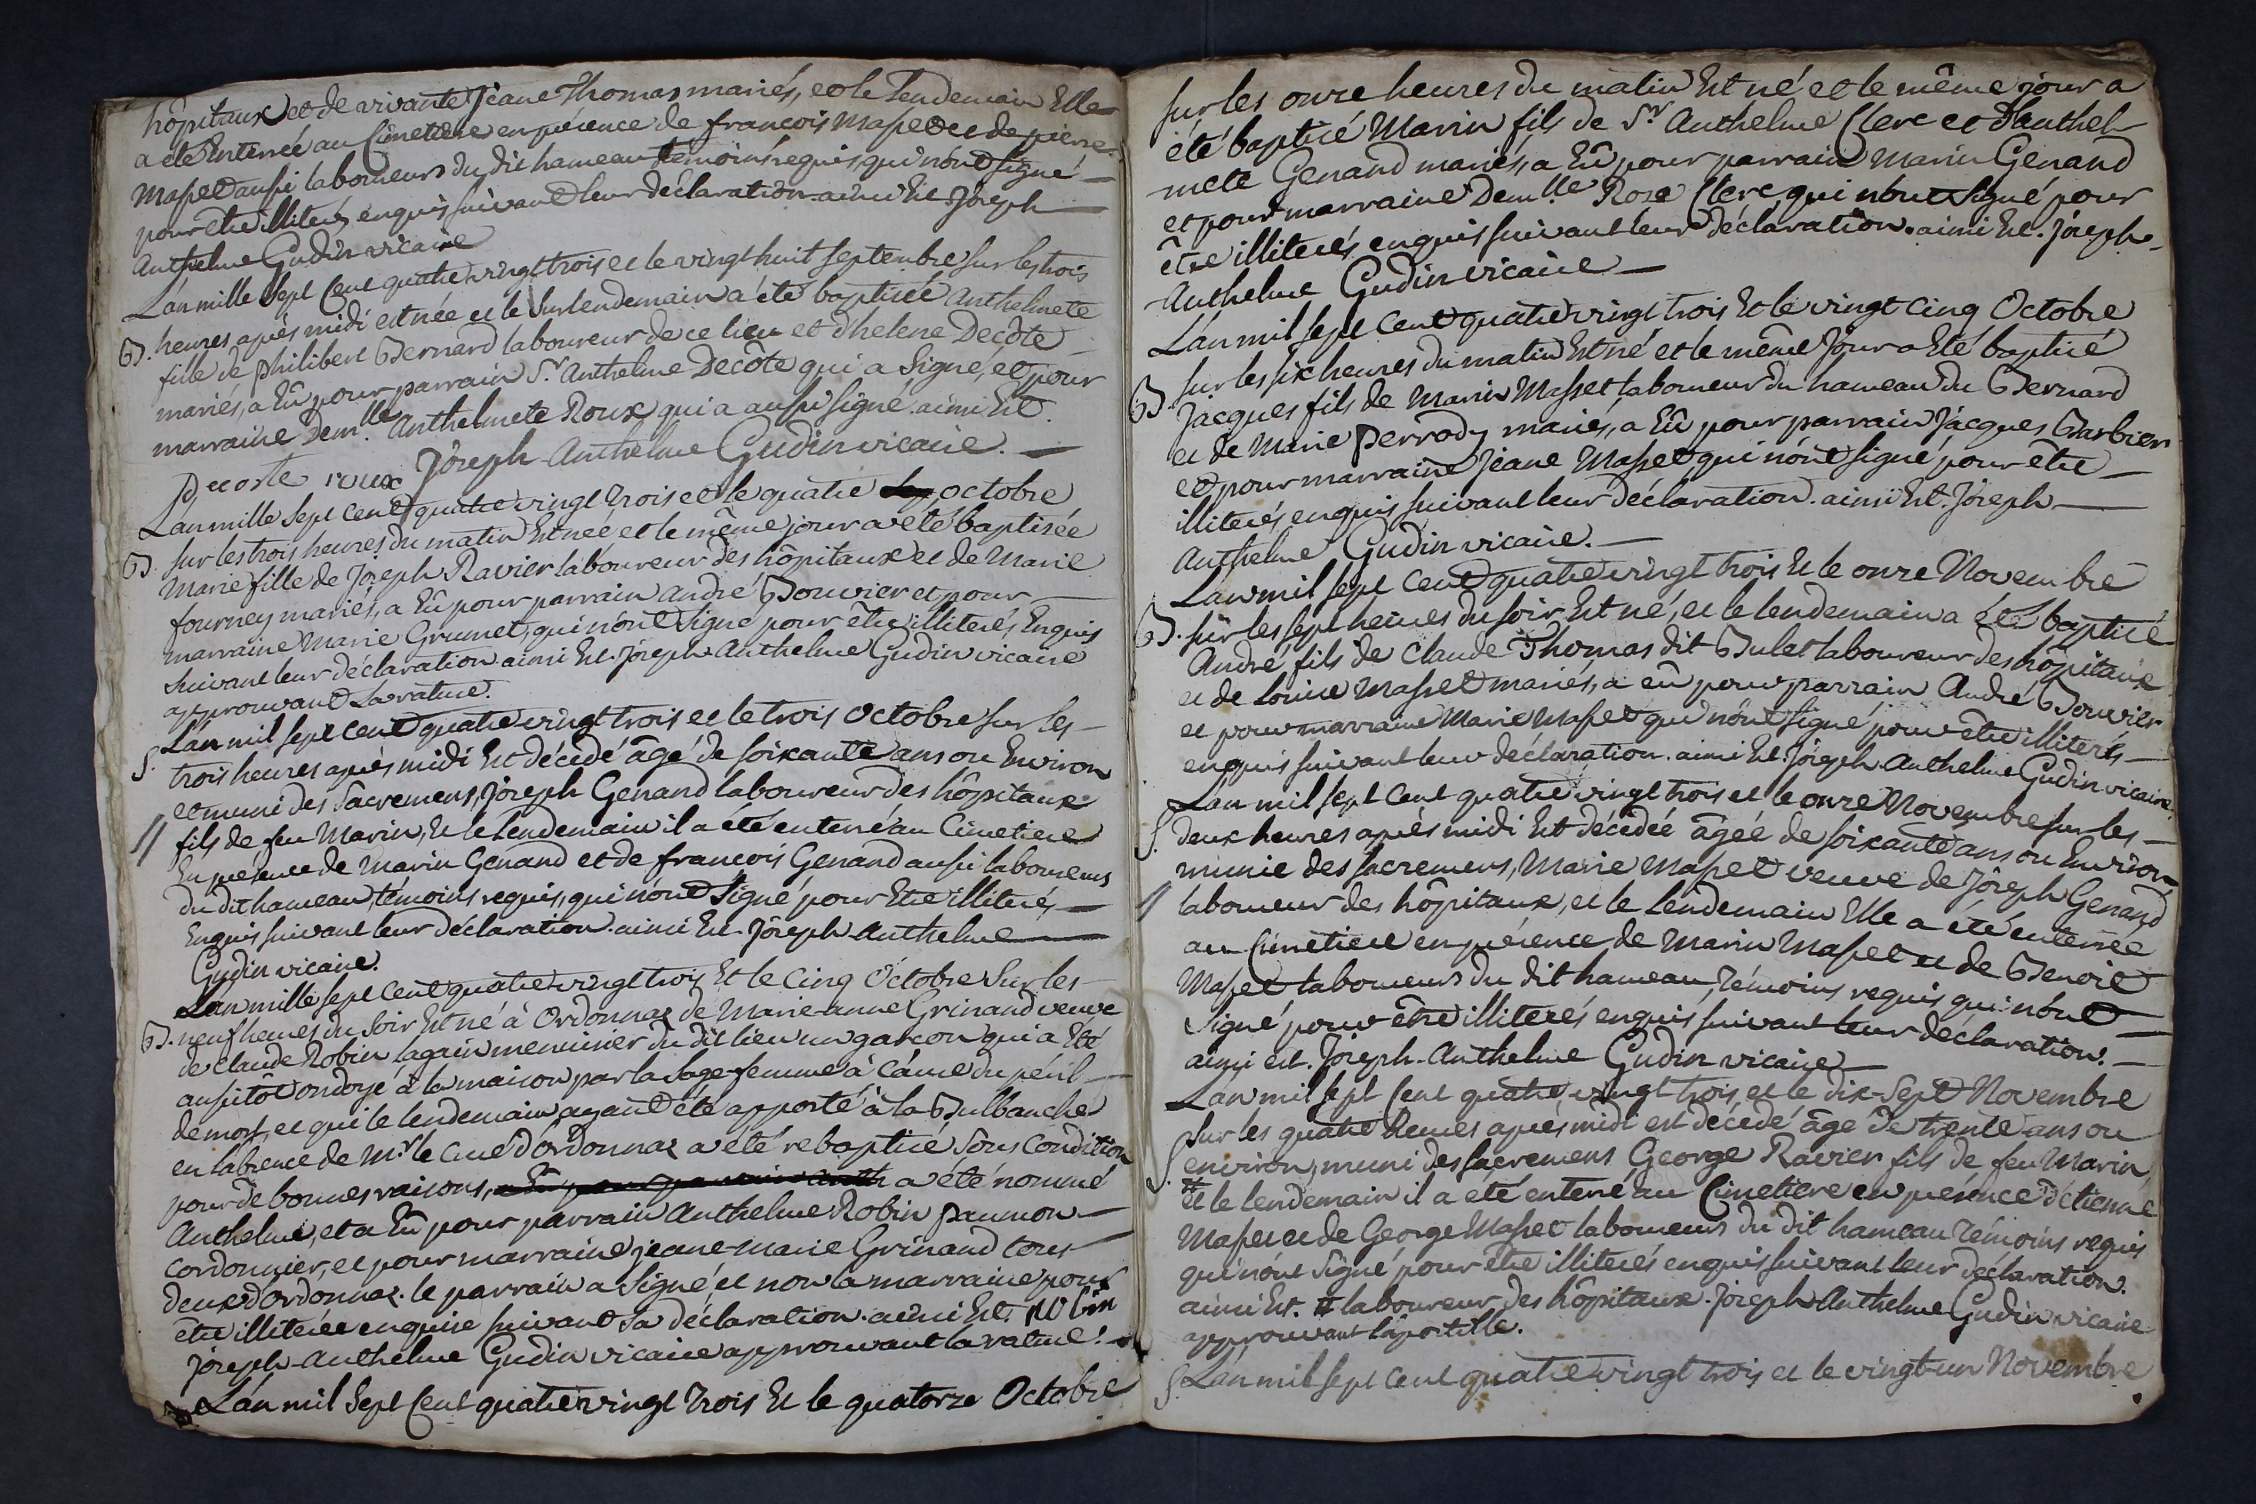 hôpitaux et de vivante Jeane Thomas mariés, et le lendemain Elle
a été Enterrée au Cimetiere en présence de françois Masset et de pierre
Masset aussi laboureurs du dit hameau temoins requis, qui n'ont signé
pour etre illiterés enquis suivant leur déclaration. ainsi Est. Joseph
Anthelme Gudin vicaire
L'an mille sept cent quatre vingt trois et le vingt huit septembre sur les trois
B. heures après midi est née et le surlendemain a été baptisée Anthelmete
fille de philibert Bernard laboureur de ce lieu et d'helene Decôte
mariés, a Eû pour parrain Sr. Anthelme Decôte qui a signé, et pour
marraine Demlle. Anthelmete Roux qui a aussi signé. ainsi Est.
Decoste roux Joseph Anthelme Gudin vicaire.
L'an mille sept cent quatre vingt trois et le quatre octobre
B. sur les trois heures du matin Est née et le même jour a eté baptisée
Marie fille de Joseph Ravier laboureur des hôpitaux et de Marie
fourney mariés, a Eû pour parrain andré Bouvier et pour
marraine Marie Grumet, qui n'ont signé pour être illiterés, Enquis
suivant leur déclaration ainsi Est. Joseph Anthelme Gudin vicaire
approuvant la rature.
L'an mil sept cent quatre vingt trois et le trois octobre sur les
S. trois heures après midi Est décedé âgé de soixante ans ou Environ
et muni des Sacremens, Joseph Genand laboureur des hôpitaux
// fils de feu Marin, Et le lendemain il a été enterré au Cimetiere
En présence de Marin Genand et de françois Genand aussi laboureurs
du dit hameau, témoins requis, qui n'ont signé pour Etre illiterés
Enquis suivant leur déclaration. ainsi Est. Joseph Anthelme
Gudin vicaire.
L'an mille sept cent quatre vingt trois Et le cinq octobre sur les
B. neuf heures du soir Est né à Ordonnaz de Marie-anne Grinand veuve
de claude Robin menuisier du dit lieu un garcon qui a Eté
aussitôt ondoyé à la maison par la sage-femme à cause du péril
de mort, et qui le lendemain ayant été apporté à la Bulbanche
en l'absence de Mr. le Curé d'ordonnaz a été rebaptisé sous condition
pour de bonnes raisons, a été nommé
Anthelme, et a Eû pour parrain Anthelme Robin
cordonnier, et pour marraine jeane-marie Grinand tous
deux d'ordonnaz. le parrain a signé, et non la marraine pour
être illiterée enquise suivant sa déclaration. ainsi Est. Robin
Joseph-Anthelme Gudin vicaire approuvant la rature.
L'an mil sept cent quatre vingt trois Et le quatorze Octobre
sur les onze heures du matin Est né et le même jour a
été baptisé Marin fils de Sr. Anthelme Clerc et d'anthel-
mete Genand mariés, a Eû pour parrain Marin Genand
et pour marraine Demlle. Rose Clerc, qui n'ont signé pour
être illiterés enquis suivant leur déclaration. ainsi Est. Joseph-
Anthelme Gudin vicaire
L'an mil sept cent quatre vingt trois Et le vingt cinq Octobre
sur les six heures du matin Est né et le même jour a Eté baptisé
B. Jacques fils de Marin Masset laboureur du hameau du Bernard
et de Marie perrody mariés, a Eû pour parrain Jacques Barbier
et pour marraine Jeane Masset, qui n'ont signé pour etre
illiterés enquis suivant leur déclaration. ainsi Est. Joseph
Anthelme Gudin vicaire.
L'an mil sept cent quatre vingt trois Et le onze Novembre
B. sur les sept heures du soir Est né, et le lendemain a été baptisé
André fils de Claude Thomas dit Bulet laboureur des hôpitaux
et de Louise Masset mariés, a eû pour parrain André Bouvier
et pour marraine Marie Masset qui n'ont signé pour etre illiterés
enquis suivant leur déclaration. ainsi Est. Joseph Anthelme Gudin vicaire
L'an mil sept cent quatre vingt trois et le onze Novembre sur les
S. deux heures après midi Est décedée âgée de soixante ans ou Environ,
munie des sacremens, Marie Masset veuve de Joseph Genand
// laboureur des hôpitaux, et le lendemain Elle a été enterrée
au Cimetiere en présence de Marin Masset et de Benoit
Masset laboureurs du dit hameau, témoins requis qui n'ont
signé pour être illiterés enquis suivant leur déclaration.
ainsi est. Joseph-Anthelme Gudin vicaire
L'an mil sept cent quatre vingt trois, et le dix-sept Novembre
sur les quatre heures après midi est décedé âgé de trente ans ou
S. environ, muni des sacremens George Ravier fils de feu Marin,
# et le lendemain il a eté enterré au Cimetiere en présence d'étienne
Masset et de George Masset laboureurs du dit hameau témoins requis
qui n'ont signé pour être illiterés enquis suivant leur déclaration.
ainsi Est. # laboureur des hôpitaux. Joseph Anthelme Gudin vicaire
approuvant l'apostille.
S. L'an mil sept cent quatre vingt trois et le vingt-un Novembre